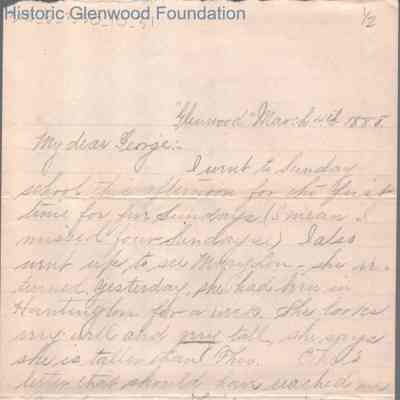 Historic Glenwood Foundation
1/2
"Glenwood" March 4th 1888.
My dear George:-
I went to Sunday
school this afternoon for the first
time for four Sundays (I mean I
missed four Sundays.) I also
went up to see - she re-
turned yesterday, she had been in
Huntington for a week. She looks
very well and very tall, she says
she is taller than Theo.
letter that should have reached me